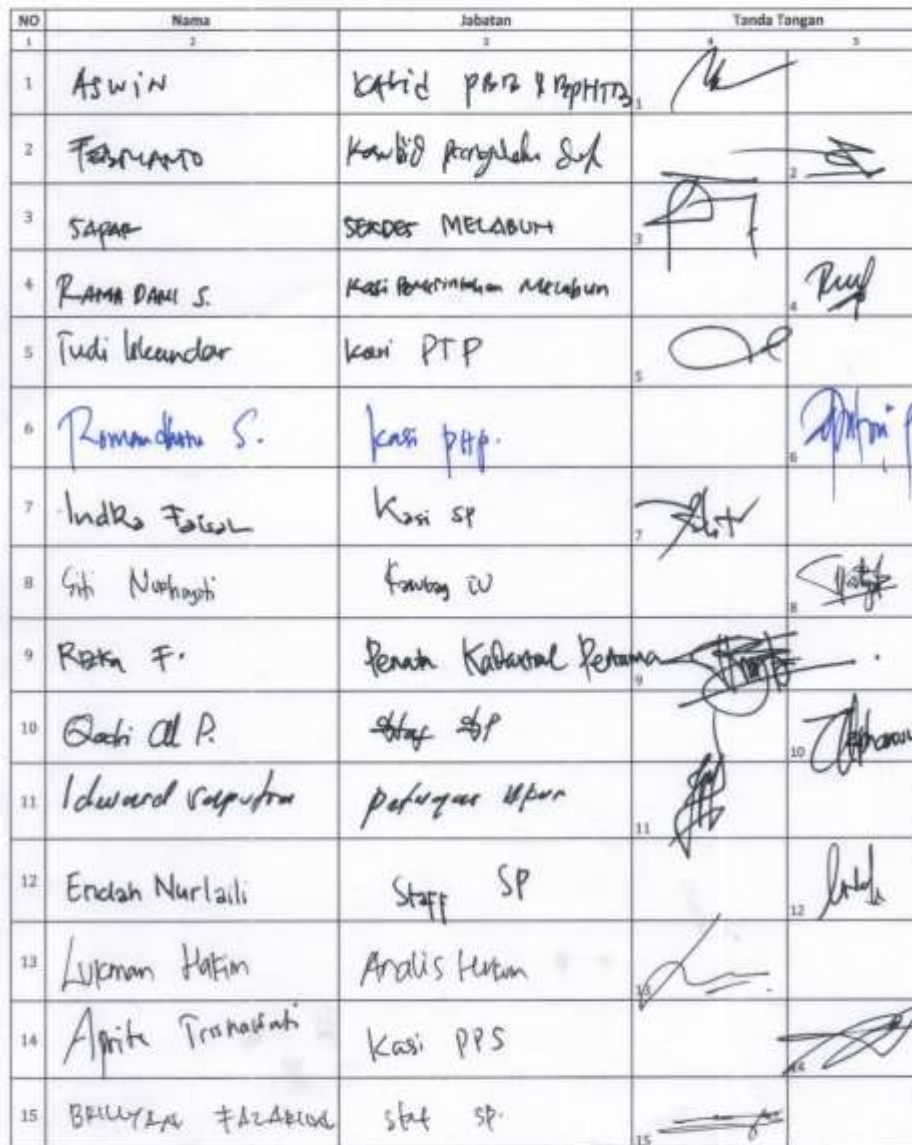 NO Nama Jabatan Tanda Tangan
1 2 3 4 5
1 ASWIN Kabid PBB & BPHTB 1
2 FEBRIANTO 2
3 SAPAR SEKDES MELABUN 3
4 RAMA DANI S. Kasi Pemerintahan Melabun 4
5 Yudi Iskandar Kasi PTP 5
6 Romandhoni S. Kasi PHP. 6
7 Indka Faisal Kasi SP 7
8 Siti Nurhayati 8
9 F. Penata Kadastral Pertama 9
10 Qadri Al P. Staf SP 10
11 Idward petugas ukur 11
12 Endah Nurlaili Staff SP 12
13 Lukman Hakim Analis Hukum 13
14 Aprita Kasi PPS 14
15 staf SP. 15